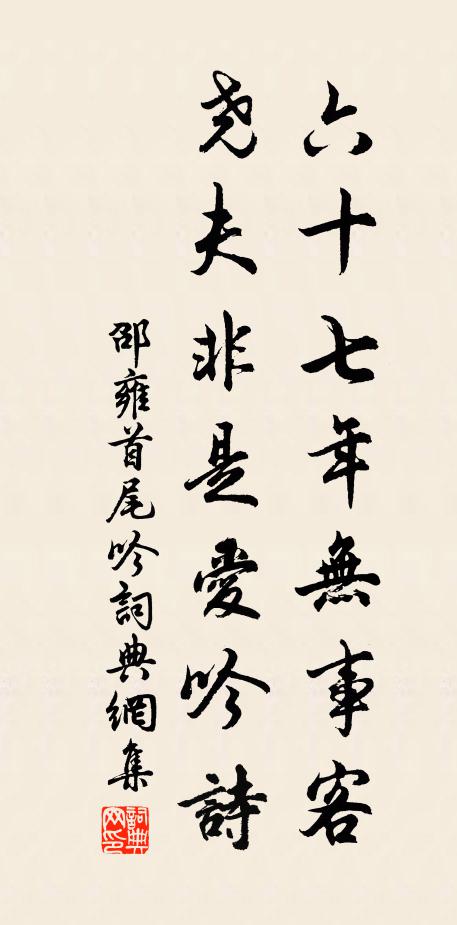 六十七年無事客
尭夫非是愛吟詩
邵雍首尾吟詞典網集
詞典網印